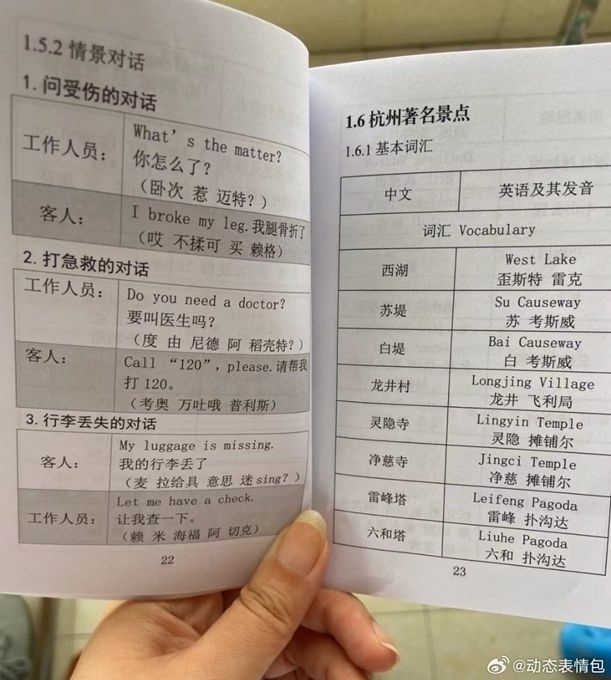 1.5.2 情景对话
1. 问受伤的对话
工作人员：
What's the matter?
你怎么了？
（卧次 惹 迈特？）
客人：
I broke my leg.我腿骨折了
（哎 不揉可 买 赖格）
2. 打急救的对话
工作人员：
Do you need a doctor?
要叫医生吗？
（度 由 尼德 阿 稻壳特？）
客人：
Call “120”,please.请帮我
打 120。
（考奥 万吐哦 普利斯）
3. 行李丢失的对话
客人：
My luggage is missing.
我的行李丢了
（麦 拉给具 意思 迷sing？）
工作人员：
Let me have a check.
让我查一下。
（赖 米 海福 阿 切克）
22
1.6 杭州著名景点
1.6.1 基本词汇
中文 英语及其发音
词汇 Vocabulary
西湖
West Lake
歪斯特 雷克
苏堤
Su Causeway
苏 考斯威
白堤
Bai Causeway
白 考斯威
龙井村
Longjing Village
龙井 飞利局
灵隐寺
Lingyin Temple
灵隐 摊铺尔
净慈寺
Jingci Temple
净慈 摊铺尔
雷峰塔
Leifeng Pagoda
雷峰 扑沟达
六和塔
Liuhe Pagoda
六和 扑沟达
23
@动态表情包